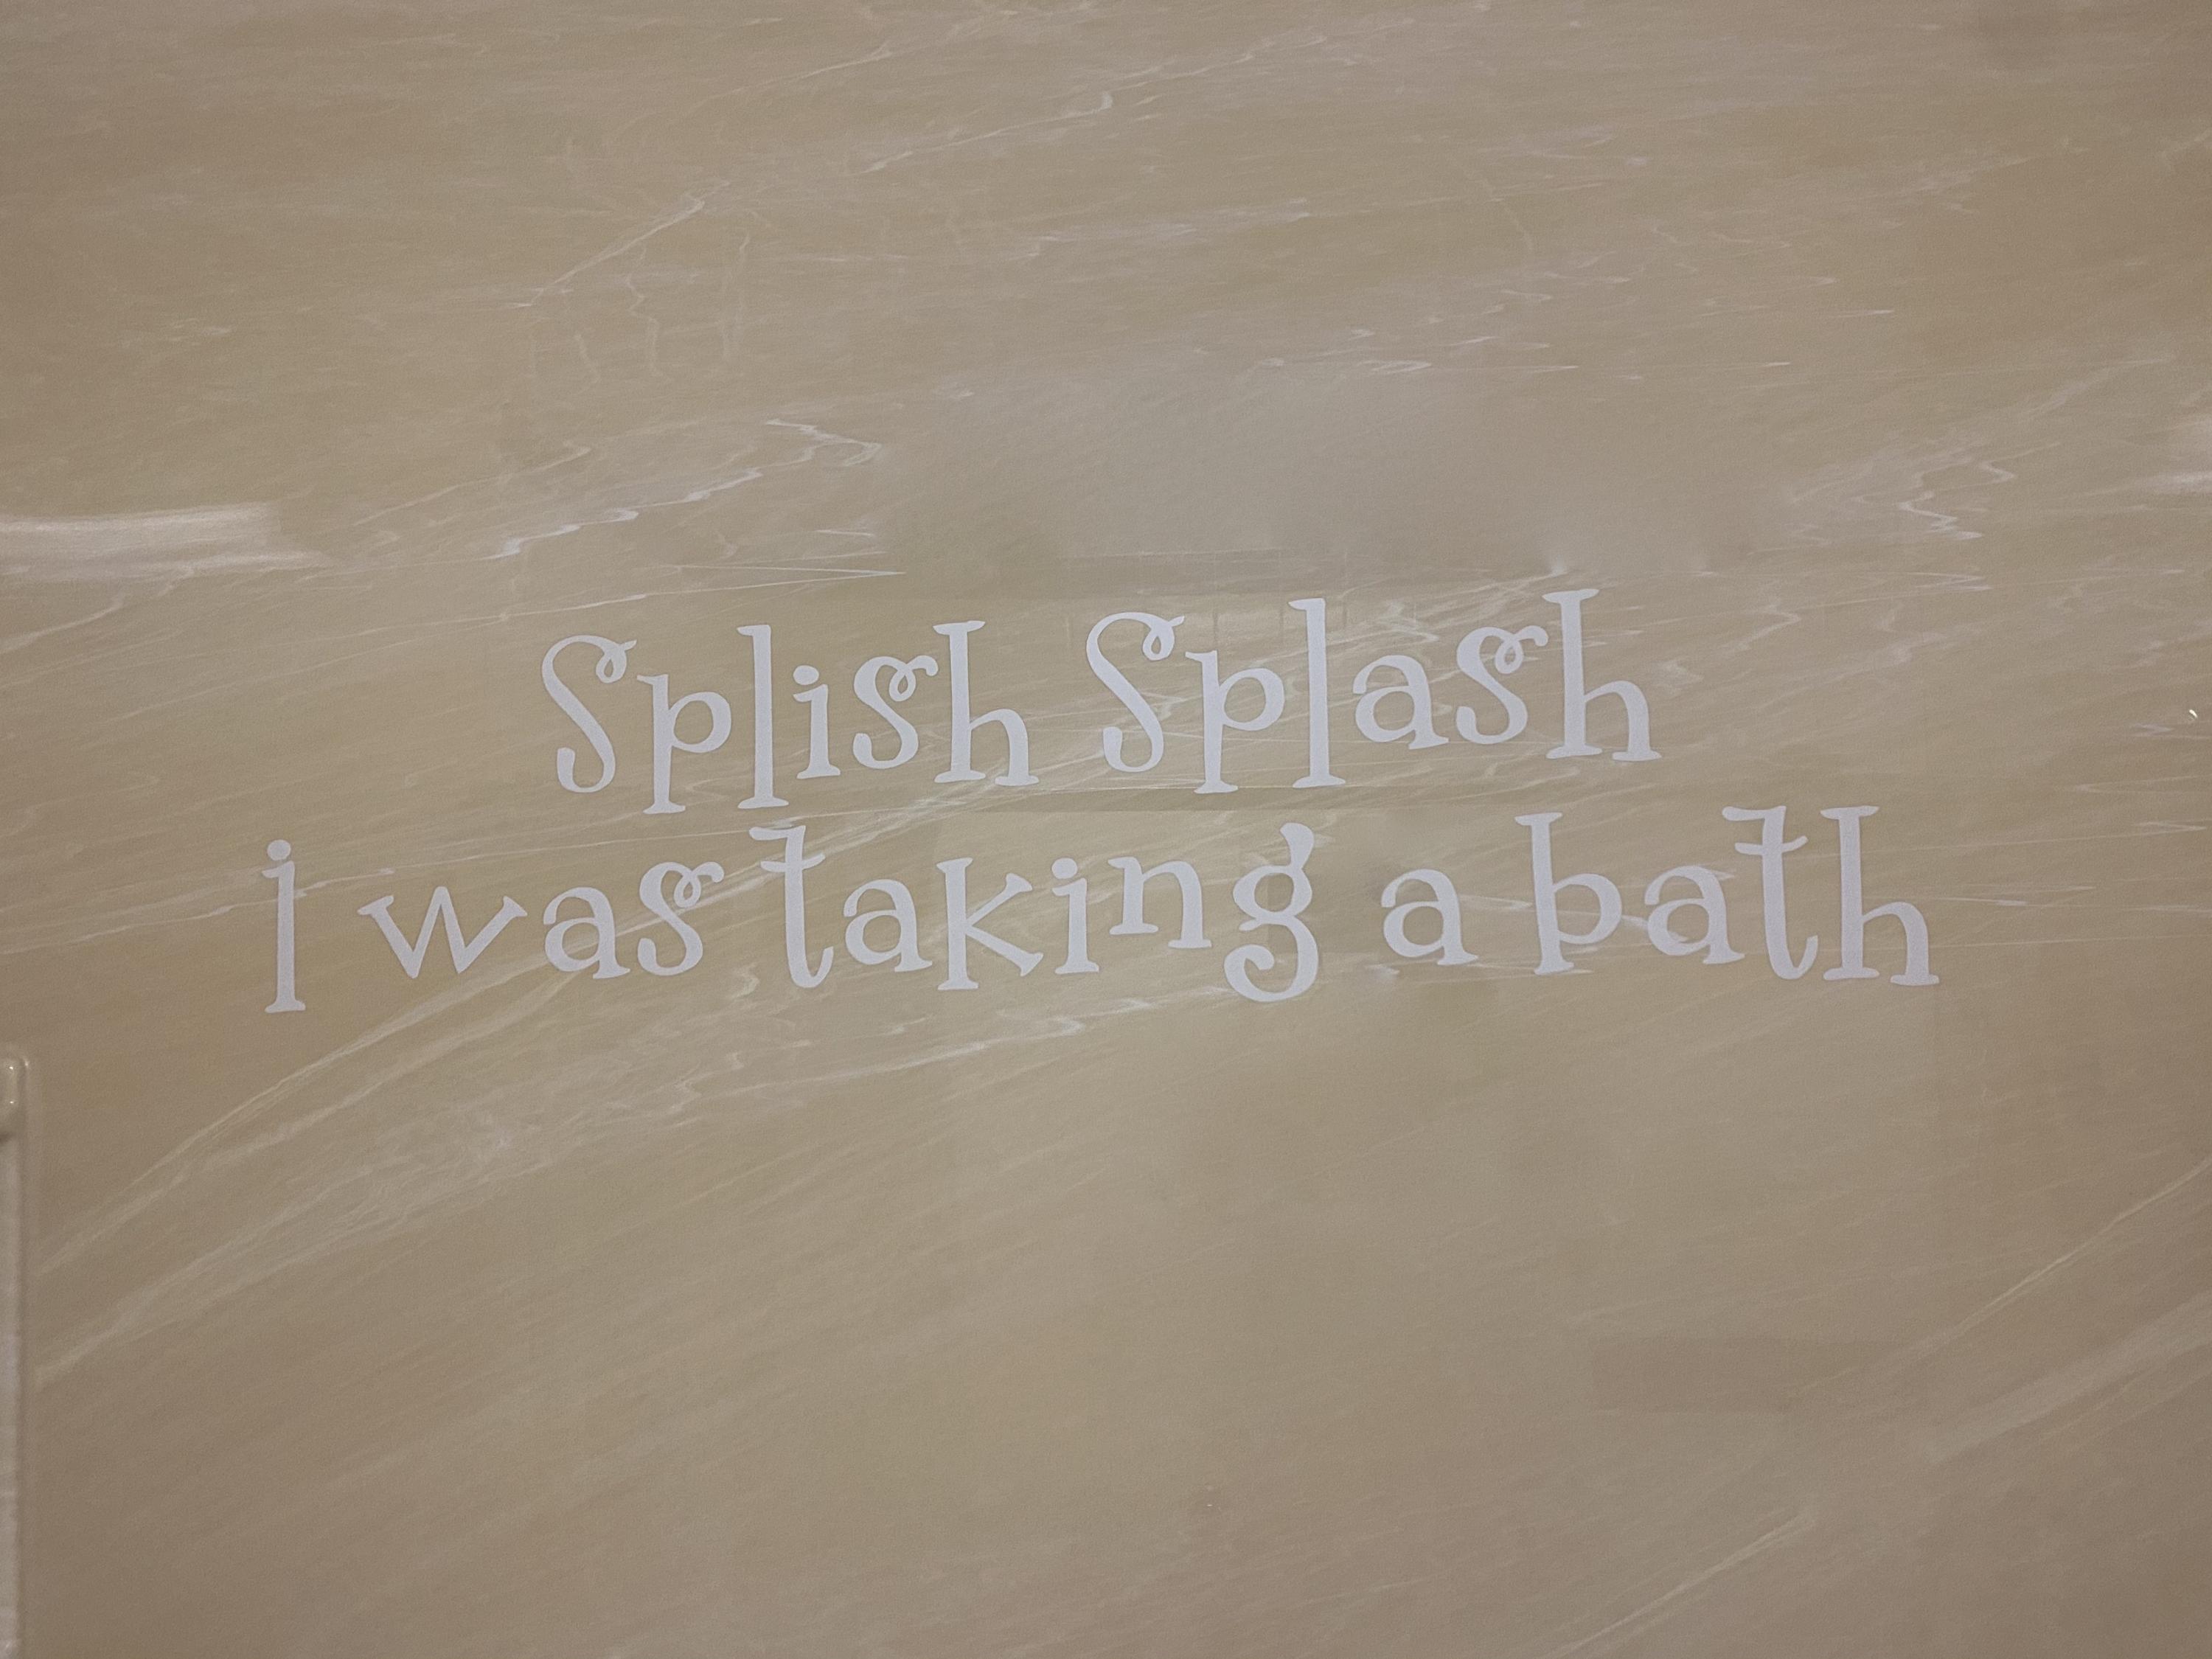 Splish Splash
i was taking a bath